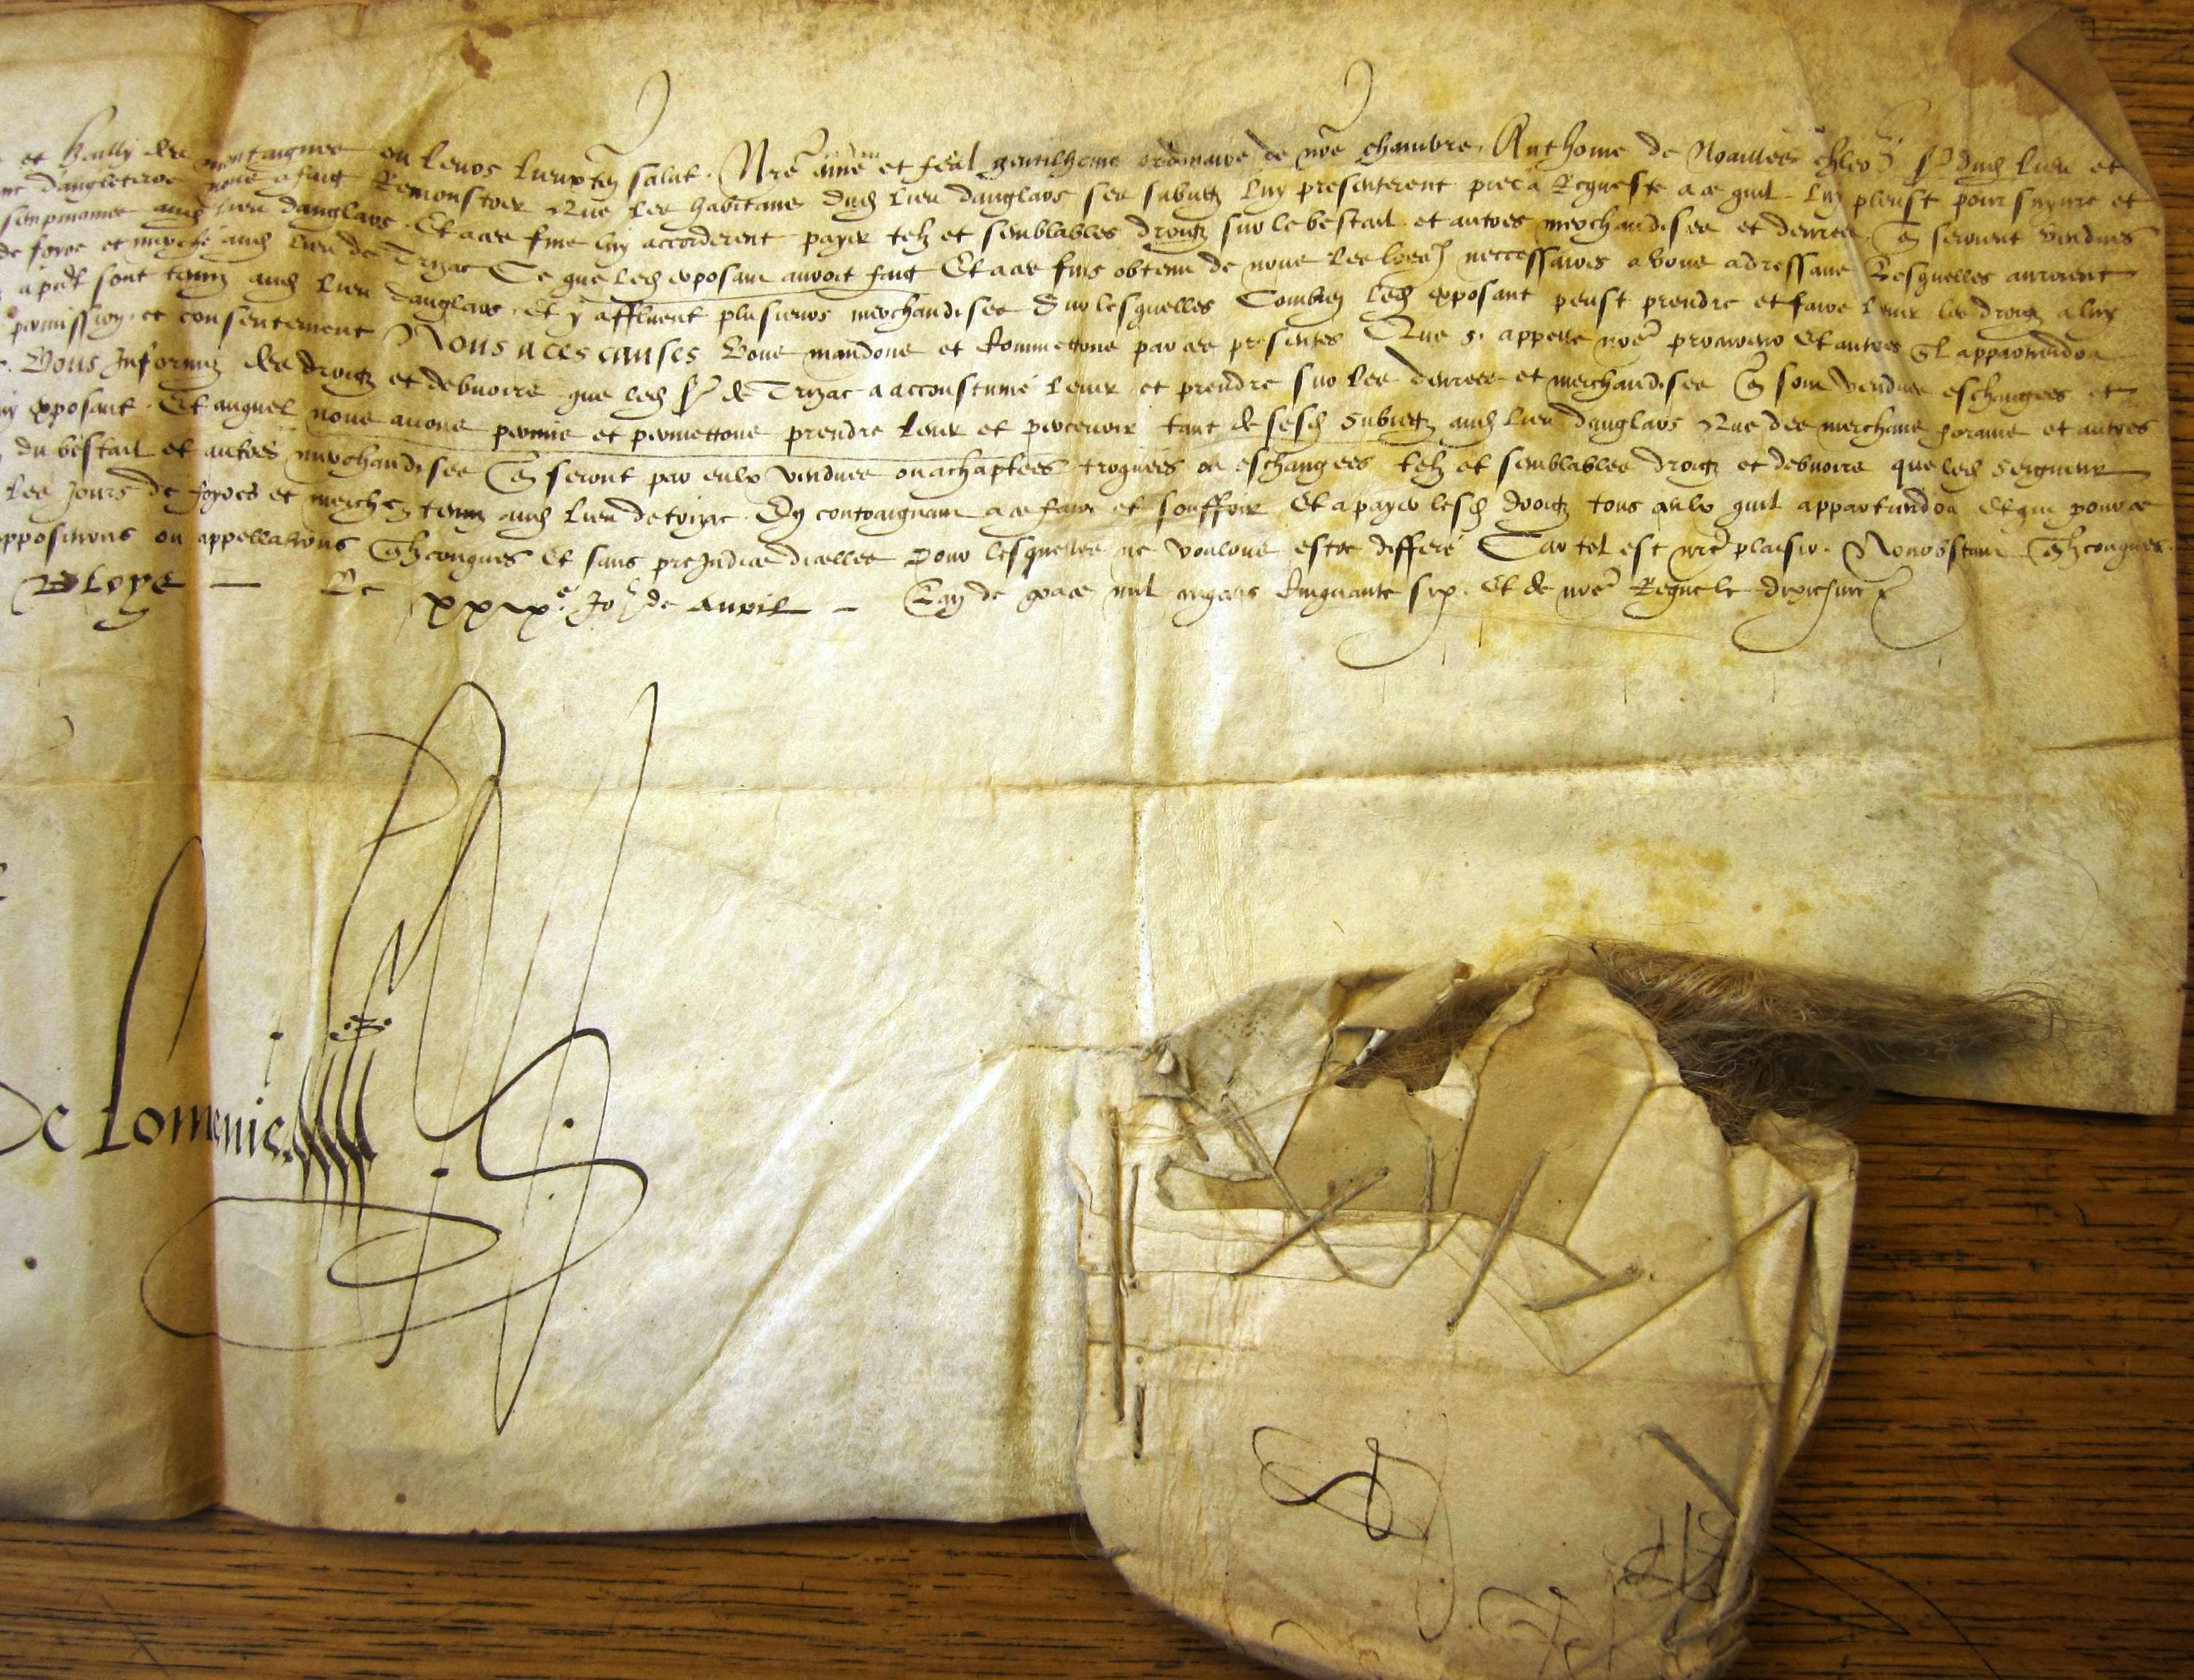 et Bailly des montaignes ou leurs lieuxten salut. Nre amé et feal gentilhome ordinaire de nre chambre Anthoine de Noailles chlr Sr dud lieu et
dangleterre nous a faict Remonstrer Que les habitans dud lieu danglars ses subiectz luy presenterent pieca Requeste a ce quil luy pleust poursuyure et
aud lieu danglars. Et a ces fins luy accorderent payer telz et semblables droictz sur le bestail et autres merchandises et denrees qui seroient vendues
de foyre et merché aud lieu de Trizac Ce que led exposant auroit faict Et a ces fins obtenu de nous les lres neccessaires a vous adressans Lesquelles auroient
sont tenuz aud lieu danglars. Et y affluent plusieurs merchandises Sur lesquelles Combien led exposant peust prendre et faire leuer les droictz a luy
permission et consentement Nous a ces causes Vous mandons et Commettons par ces presentes Que s. appelle nre procureur Et autres quil appartiendra
Vous Informez des droictz et debuoirs que led Sr de Trizac a accoustumé leuer et prendre sur les denrees et merchandises qui sont vendues eschangees et
exposant. Et auquel nous auons permis et permettons prendre leuer et perceuoir tant de sesd subiectz aud lieu danglars Que des merchans forains et autres
du bestail et autres merchandises qui seront par eulx vendues ou achaptees troquees ou eschangees telz et semblables droictz et debuoirs que led Seigneur
les Jours de foyres et merchez tenuz aud lieu de trizac. En contraignant a ce faire et souffrir Et a payer lesd droictz tous ceulx quil appartiendra Et qui pour ce
oppositions ou appellations qlzconques Et sans preJudice dicelles pour lesquelles ne voulons estre differé Car tel est nre plaisir. Nonobstant qlzconques
Bloys — Le xxixe Jor de Auril — Lan de grace mil cinq cens Cinquante six. Et de nre Regne le dixiesme
De Lomenie